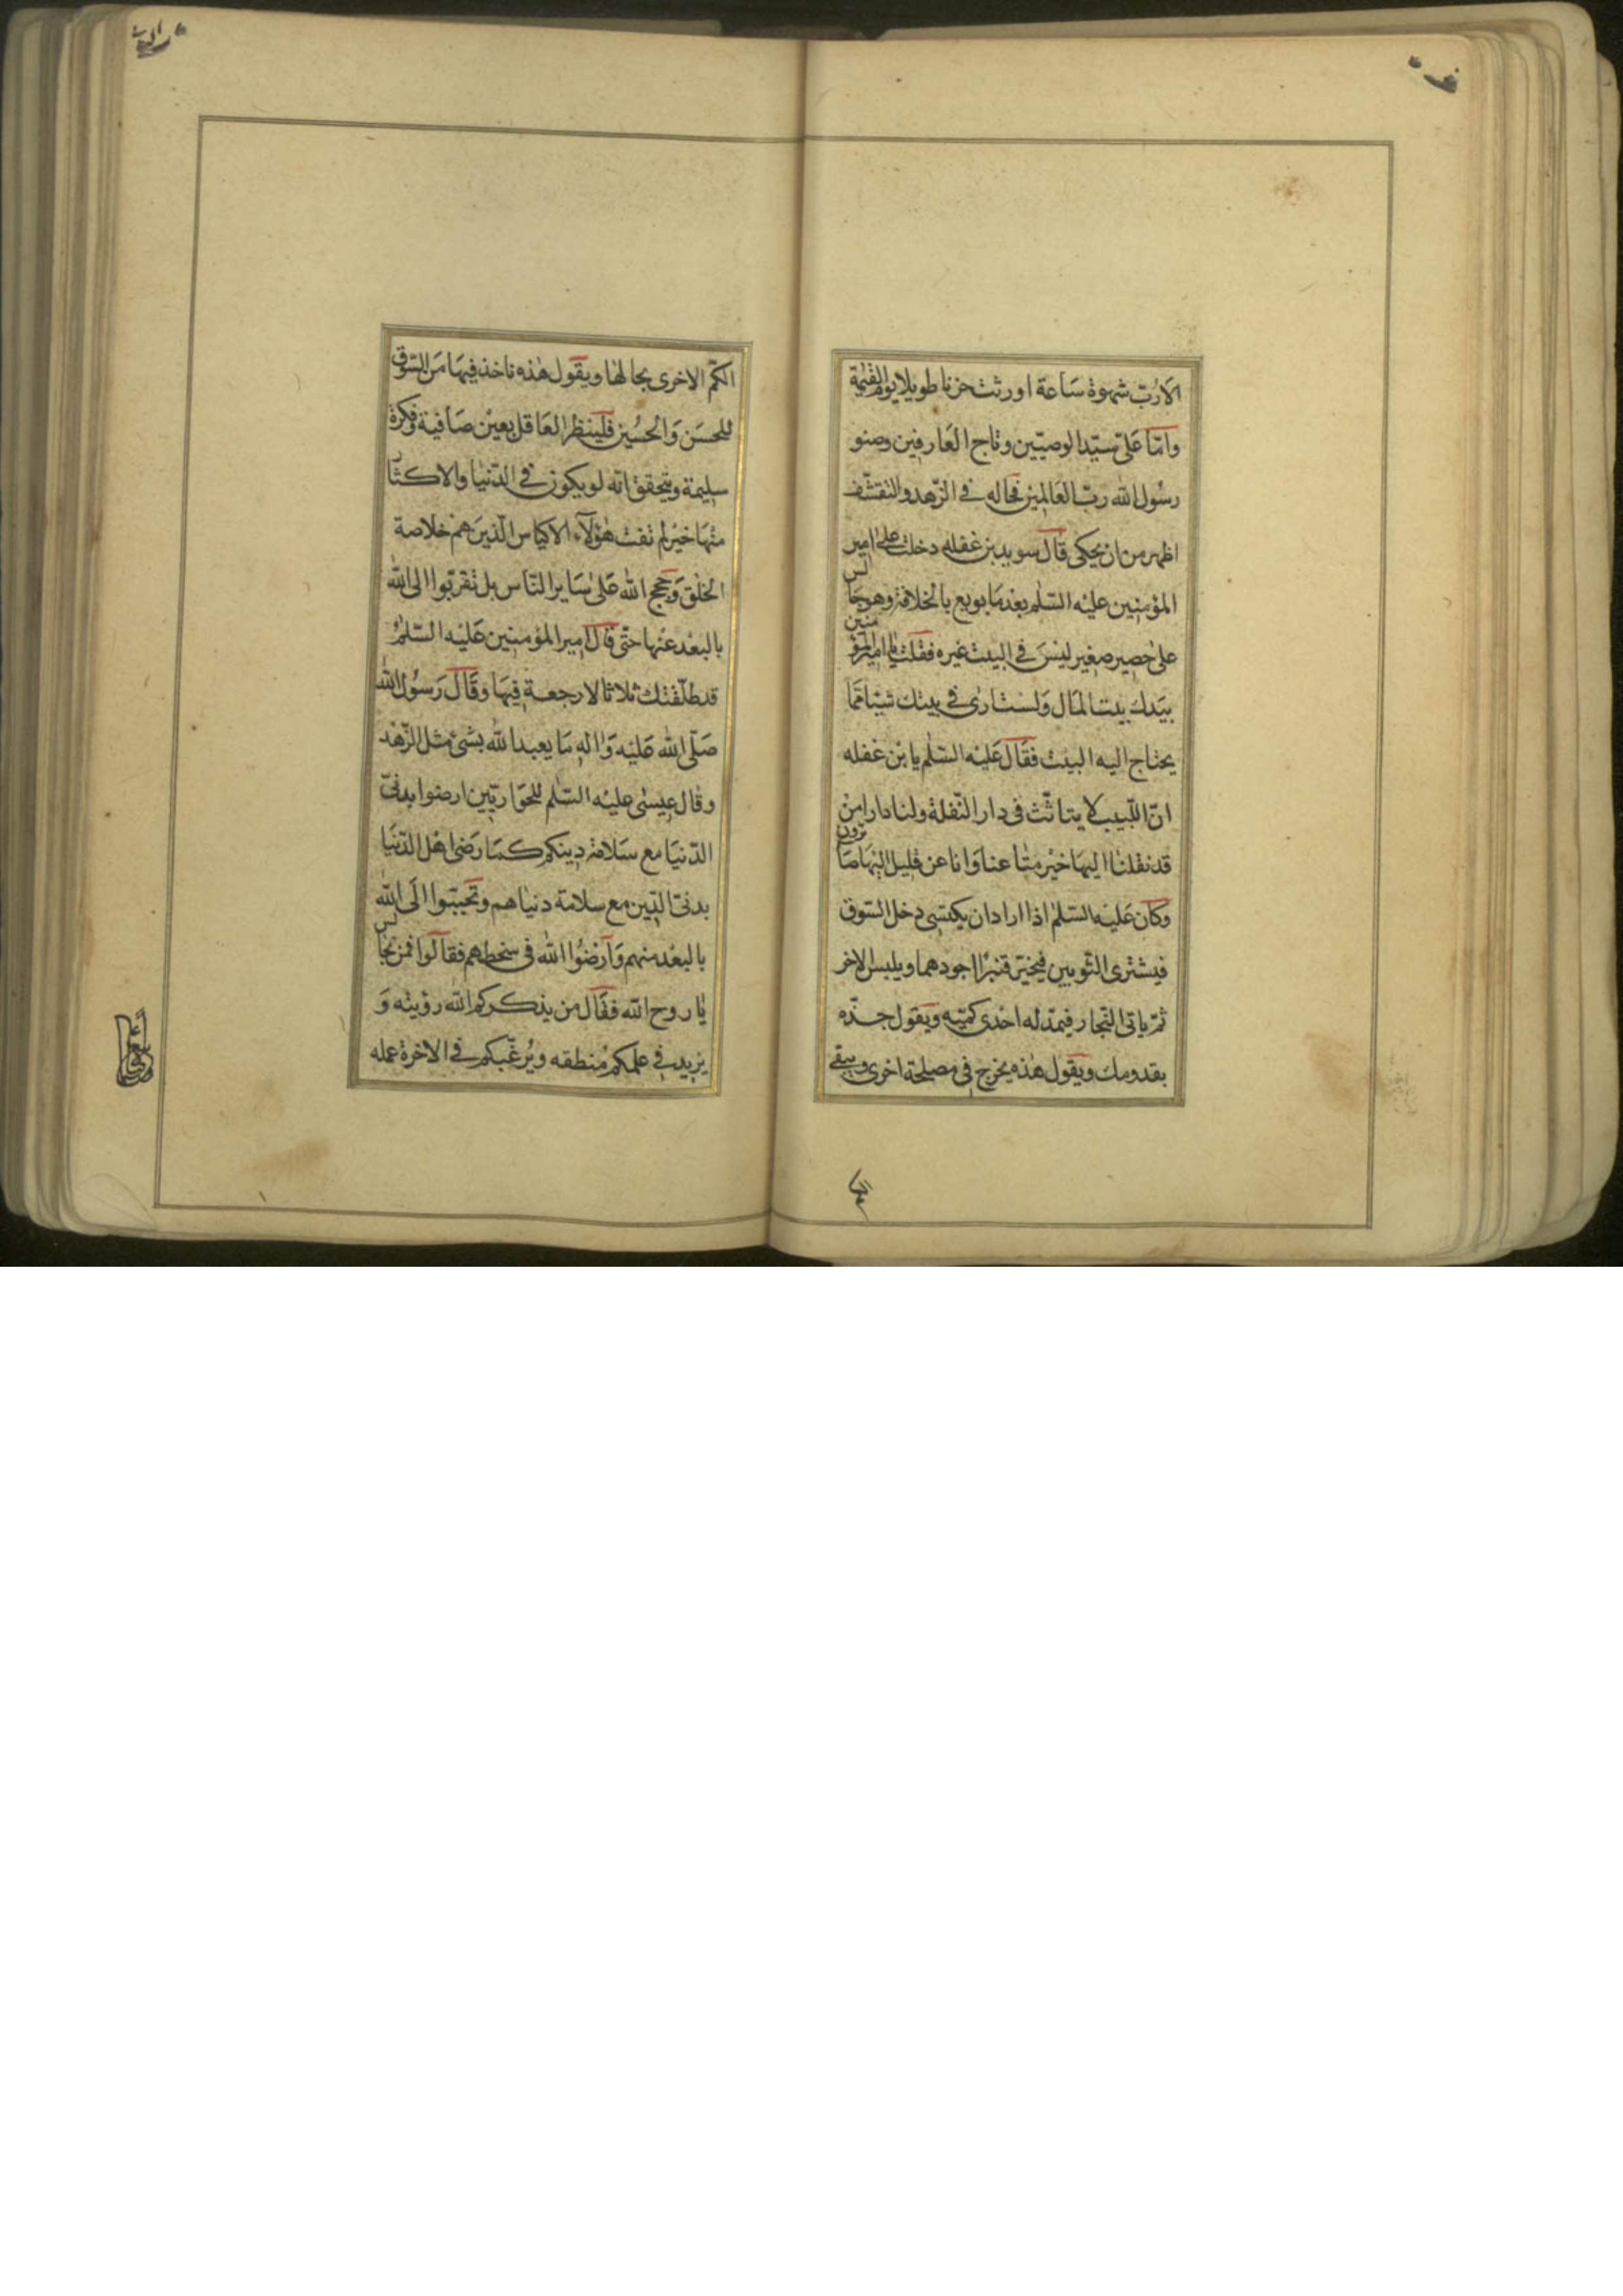 الا رُبّ شهوة ساعة اورثت حزنا طويلا يوم القيٰمة
وامّا علىّ سيّد الوصيّين وتاج العارفين وصنو
رسُول الله ربّ العالمين فحاله فى الزّهد والتقشّف
اظهر من ان يحكى قال سويد بن غفله دخلت علىٰ امير
المؤمنين عليه السّلٰم بعد ما بويع بالخلافة وهو جالس
علىٰ حصير صغير ليس فى البيت غيره فقلت يا امير المؤمنين
بيدك بيت المال ولست ارى فى بيتك شيئا ممّا
يحتاج اليه البيت فقال عليه السّلٰم يا بن غفله
انّ اللّبيب لا يتاثّث فى دار النّقلة ولنا دار امن
قد نقلنا اليها خير متاعنا وانا عن قليل اليها صايرون
وكان عليه السّلٰم اذا اراد ان يكتسى دخل السّوق
فيشترى الثّوبين فيخيّر قنبرًا اجودهما ويلبس الاخر
ثمّ ياتى النّجار فيمدّ له احدى كمّيه ويقول جذّه
بقدومك ويقول هٰذه يخرج فى مصلحة اخرى ويبقى
الكمّ الاخرى بحالها ويقول هٰذه ناخذ فيها من السّوق
للحسَن وَالحُسين فلينظر العاقل بعين صافية وفكرة
سليمة ويتحقق انّه لو يكون فى الدّنيا والاكثار
منها خير لم تفت هٰؤلآء الاكياس الّذين هم خلاصة
الخلق وحجج الله علىٰ ساير النّاس بل تقرّبوا الى الله
بالبعد عنها حتّى قال امير المؤمنين عليه السّلٰم
قد طلّقتك ثلاثا لا رجعة فيها وقال رسُول الله
صلّى الله عليه واله ما يعبد الله بشئ مثل الزّهد
وقال عيسٰى عليه السّلٰم للحوّاريّين ارضوا بدنىّ
الدّنيا مع سلامة دينكم كما رضى اهل الدّنيا
بدنىّ الدّين مع سلامة دنياهم وتحبّبوا الى الله
بالبعد منهم وارضُوا الله فى سخطهم فقالوا فمن نجالس
يا روح الله فقال من يذكّركم الله رؤيته وَ
يزيد فى علمكم منطقه ويُرغّبكم فى الاخرة عمله